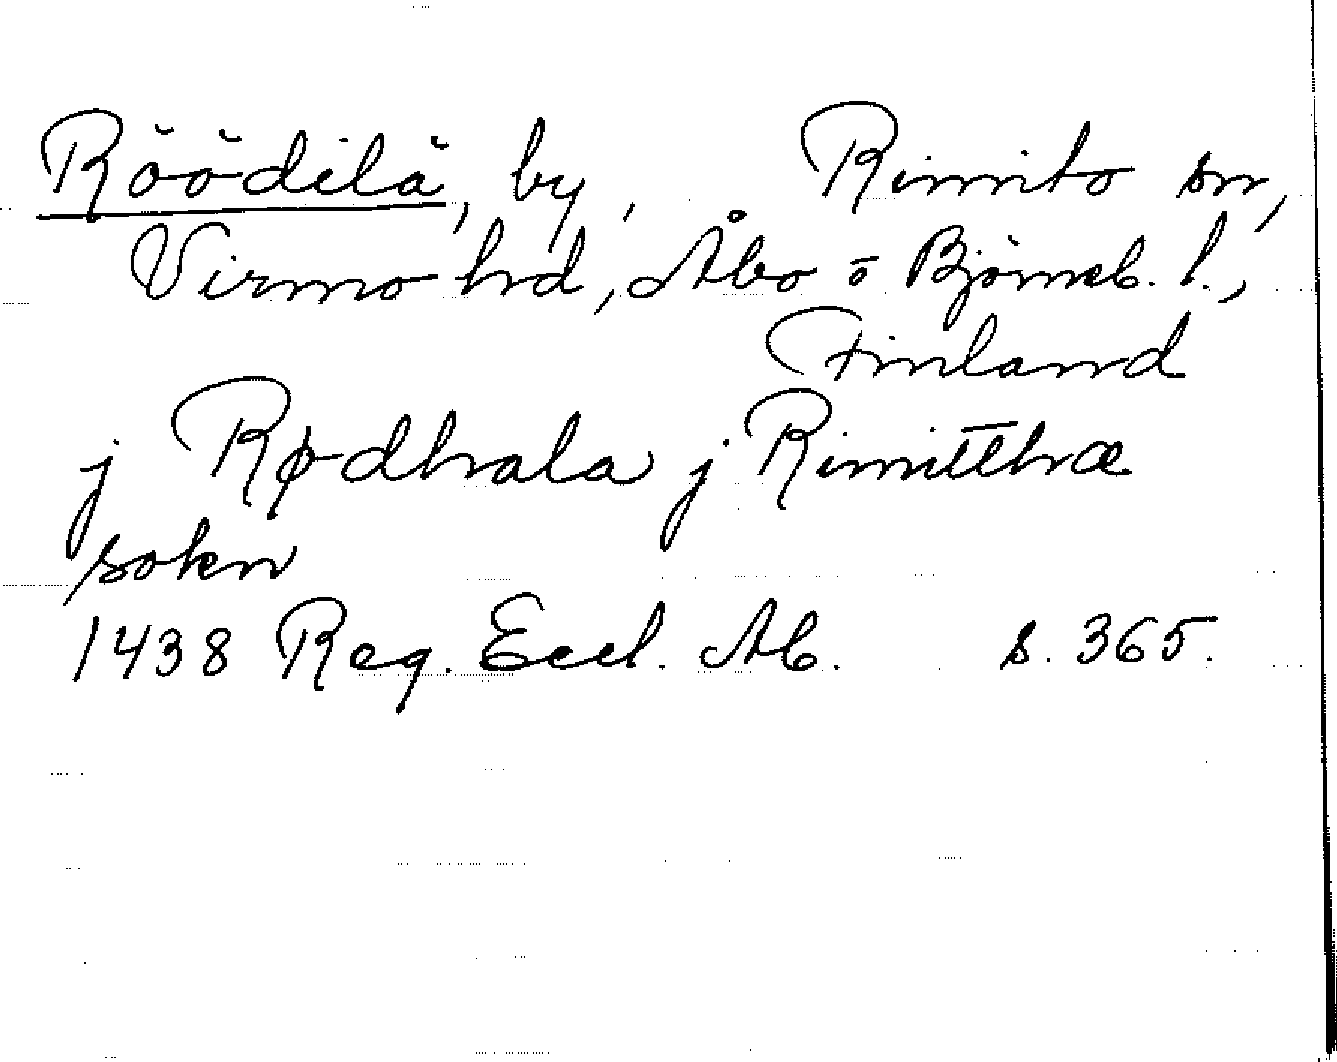 Röödilä, by, Rimito sn,
Virmo hd, Åbo ō Björneb. l.,
Finland
j Rødhala j Rimitthæ
sokn
1438 Reg. Eccl. Ab. s. 365.